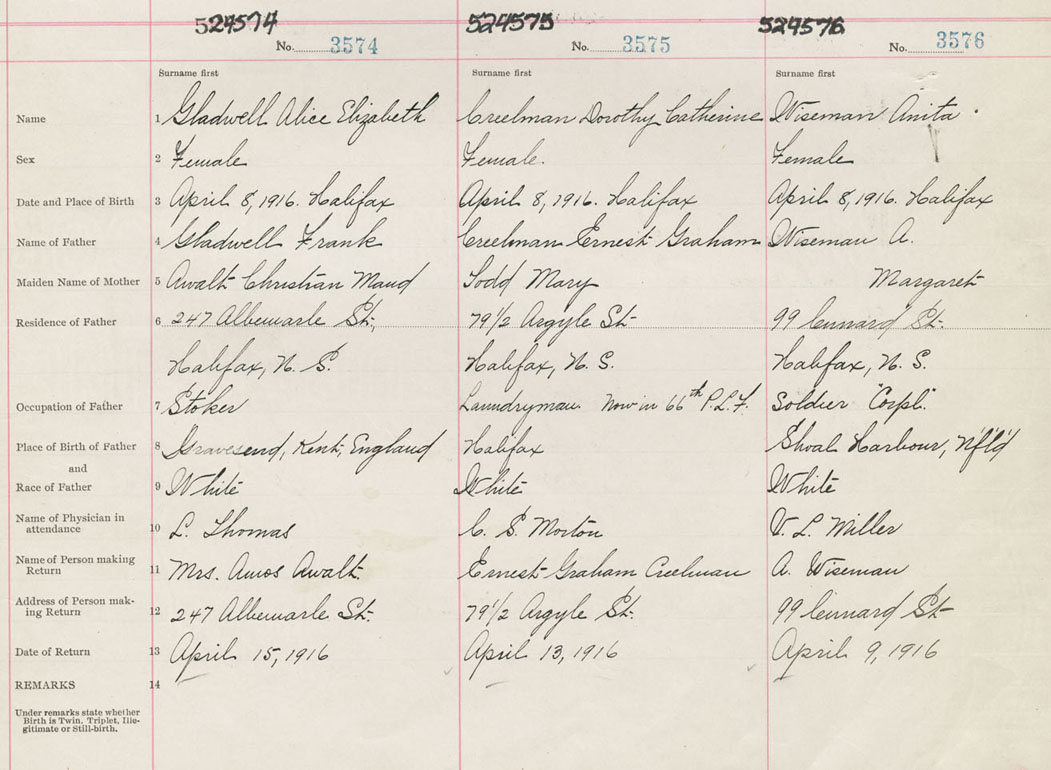 524574 524575 524576
No. 3574 No. 3575 No. 3576
Surname first Surname first Surname first
Name 1 Gladwell Alice Elizabeth Creelman Dorothy Catherine Wiseman Anita
Sex 2 Female Female. Female
Date and Place of Birth 3 April 8, 1916. Halifax April 8, 1916. Halifax April 8, 1916. Halifax
Name of Father 4 Gladwell Frank Creelman Ernest Graham Wiseman A.
Maiden Name of Mother 5 Awalt Christian Maud Todd Mary Margaret
Residence of Father 6 247 Albemarle St. 79 1/2 Argyle St. 99 St.
Halifax, N. S. Halifax, N. S. Halifax, N. S.
Occupation of Father 7 Stoker Laundryman Now in 66th P.L.F. Soldier "Corpl."
Place of Birth of Father 8 Gravesend, Kent, England Halifax Shoal Harbour, Nf'l'd
and
Race of Father 9 White White White
Name of Physician in
attendance 10 L. Thomas C. S. Morton V. L. Miller
Name of Person making
Return 11 Mrs. Amos Awalt. Ernest Graham Creelman A. Wiseman
Address of Person mak-
ing Return 12 247 Albemarle St. 79 1/2 Argyle St. 99 St.
Date of Return 13 April 15, 1916 April 13, 1916 April 9, 1916
REMARKS 14
Under remarks state whether
Birth is Twin, Triplet, Ille-
gitimate or Still-birth.